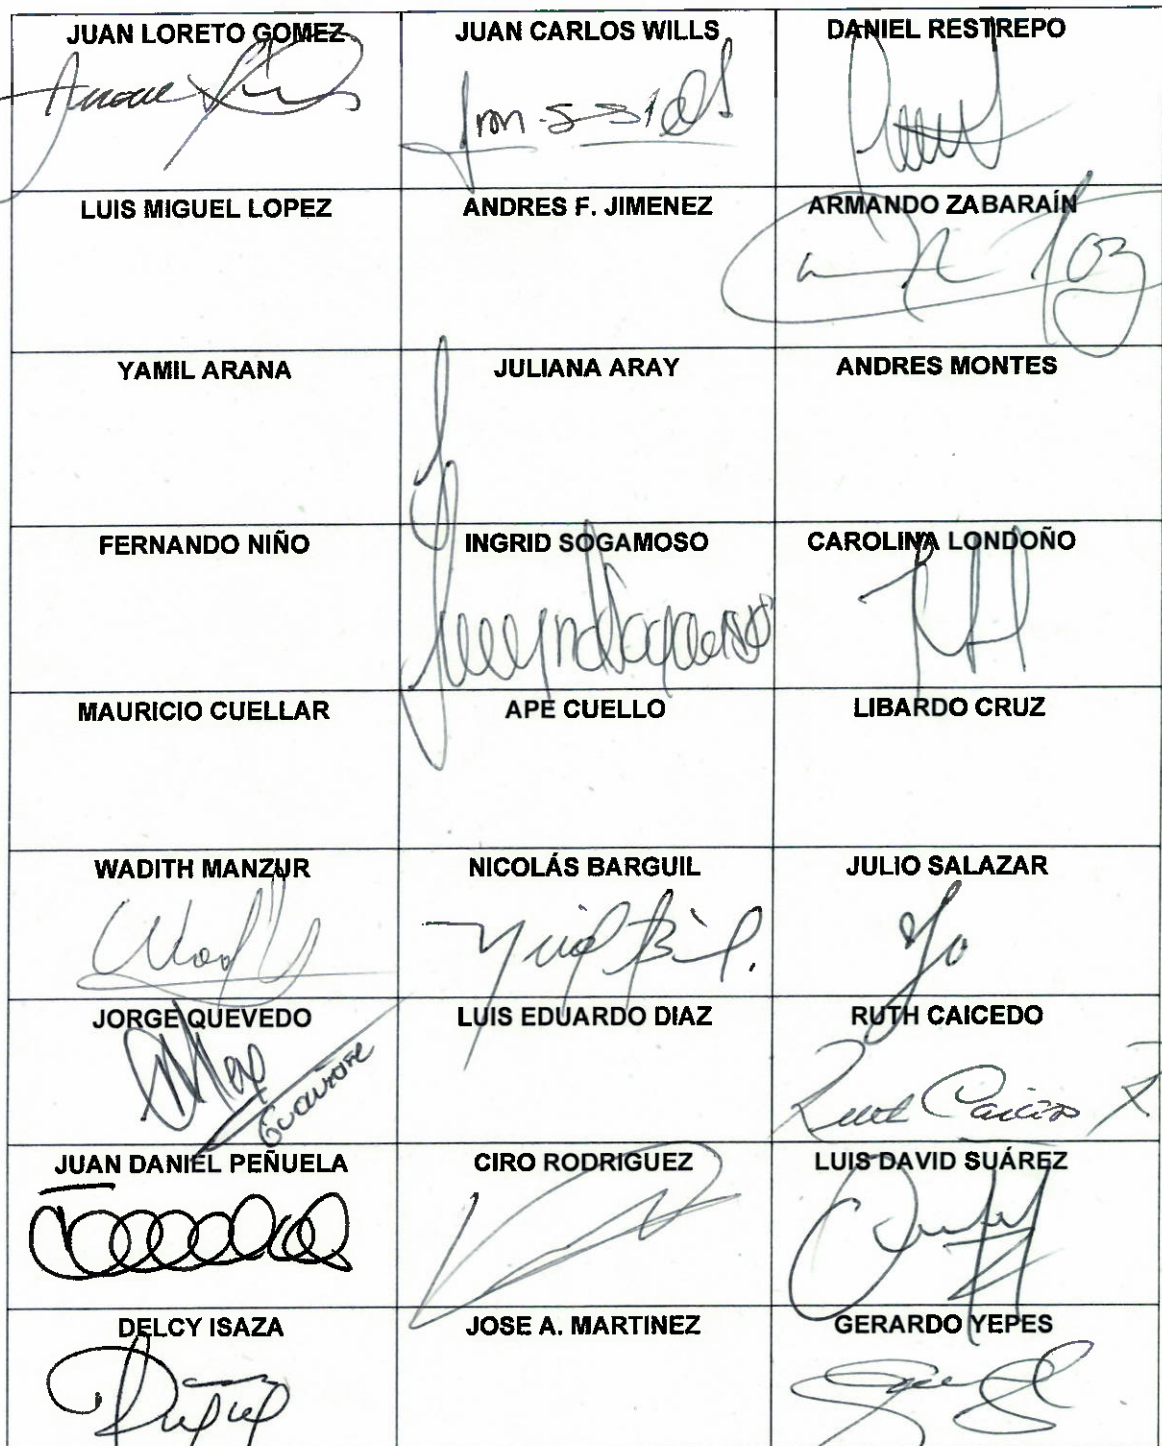 JUAN LORETO GOMEZ
JUAN CARLOS WILLS
DANIEL RESTREPO
LUIS MIGUEL LOPEZ
ANDRES F. JIMENEZ
ARMANDO ZABARAÍN
YAMIL ARANA
JULIANA ARAY
ANDRES MONTES
FERNANDO NIÑO
INGRID SOGAMOSO
CAROLINA LONDOÑO
MAURICIO CUELLAR
APE CUELLO
LIBARDO CRUZ
WADITH MANZUR
NICOLÁS BARGUIL
JULIO SALAZAR
JORGE QUEVEDO
LUIS EDUARDO DIAZ
RUTH CAICEDO
JUAN DANIEL PEÑUELA
CIRO RODRIGUEZ
LUIS DAVID SUÁREZ
DELCY ISAZA
JOSE A. MARTINEZ
GERARDO YEPES